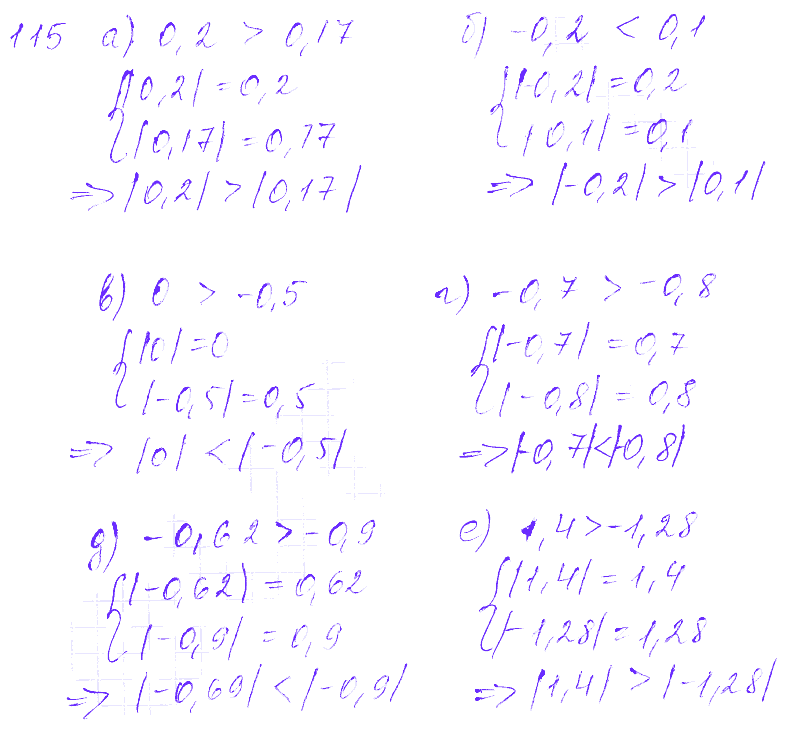 115 а) 0,2 > 0,17
{|0,2| = 0,2
{|0,17| = 0,17
=> |0,2| > |0,17|
б) -0,2 < 0,1
{|-0,2| = 0,2
{|0,1| = 0,1
=> |-0,2| > |0,1|
в) 0 > -0,5
{|0| = 0
{|-0,5| = 0,5
=> |0| < |-0,5|
г) -0,7 > -0,8
{|-0,7| = 0,7
{|-0,8| = 0,8
=> |-0,7| < |-0,8|
д) -0,62 > -0,9
{|-0,62) = 0,62
{|-0,9| = 0,9
=> |-0,69| < |-0,9|
е) 1,4 > -1,28
{|1,4| = 1,4
{|-1,28| = 1,28
=> |1,4| > |-1,28|